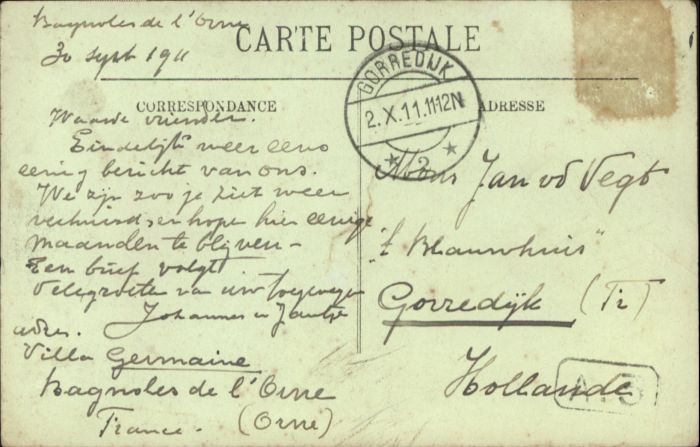 Bagnoles de l'Orne
30 Sept 1911
CARTE POSTALE
CORRESPONDANCE
ADRESSE
GORREDIJK
2.X.11.11-12N
* 2 *
Waarde vrienden.
Eindelijk weer eens
eenig bericht van ons.
We zijn zoo je ziet weer
verhuisd, en hope hier eenige
maanden te blijven -
Een brief volgt
Vele groeten van uw toegenegen
Johannes en Jantje
adres.
Villa Germaine
Bagnoles de l'Orne
France. (Orne)
Mons Jan vd Vegt
"'t Blauwhuis"
Gorredijk (Fr)
Hollande